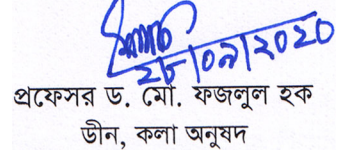 ২৮/০৯/২০২০
প্রফেসর ড. মো. ফজলুল হক
ডীন, কলা অনুষদ